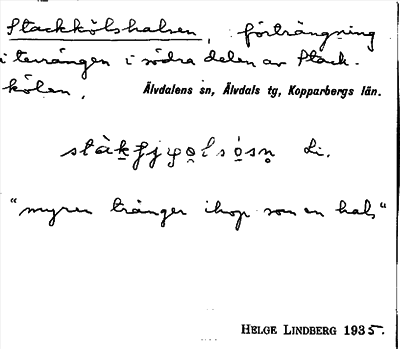 Stackkölshalsen, förträngning
i terrängen i södra delen av Stack-
kölen. Älvdalens sn, Älvdals tg, Kopparbergs län.
Li.
"myren tränger ihop som en hals"
HELGE LINDBERG 1935.